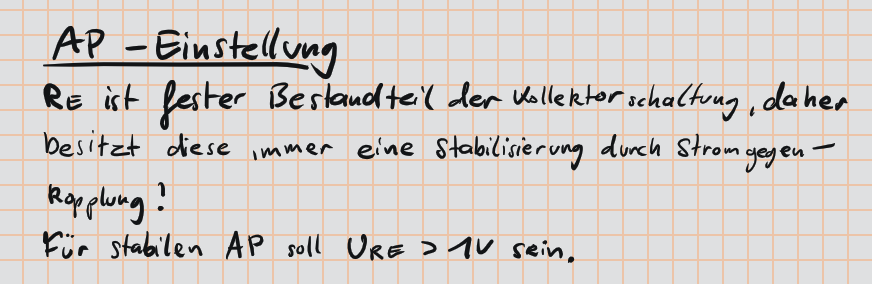 AP - Einstellung
RE ist fester Bestandteil der Kollektorschaltung, daher
besitzt diese immer eine Stabilisierung durch Stromgegen-
kopplung!
Für stabilen AP soll URE > 1V sein.